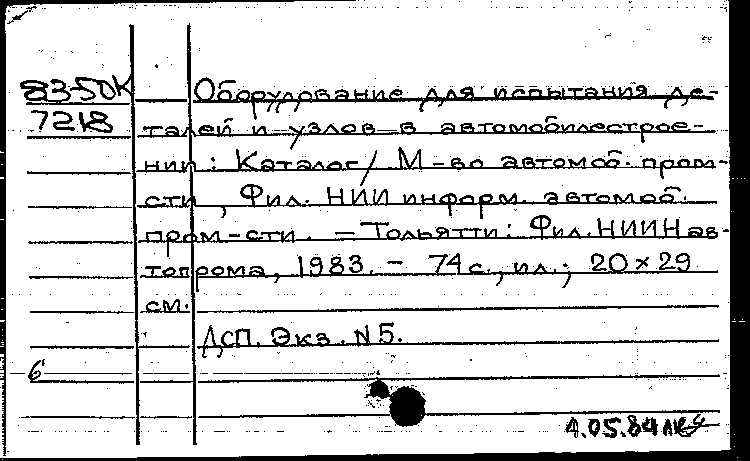 83-50К Оборудование для испытания де-
7218 талей и узлов в автомобилестрое-
нии : Каталог / М-во автомоб. пром-
сти, Фил. НИИ информ. автомоб.
пром-сти. - Тольятти : Фил. НИИНав-
топрома, 1983. - 74 с., ил.; 20×29
см.
ДСП. Экз. N 5.
6
4.05.84